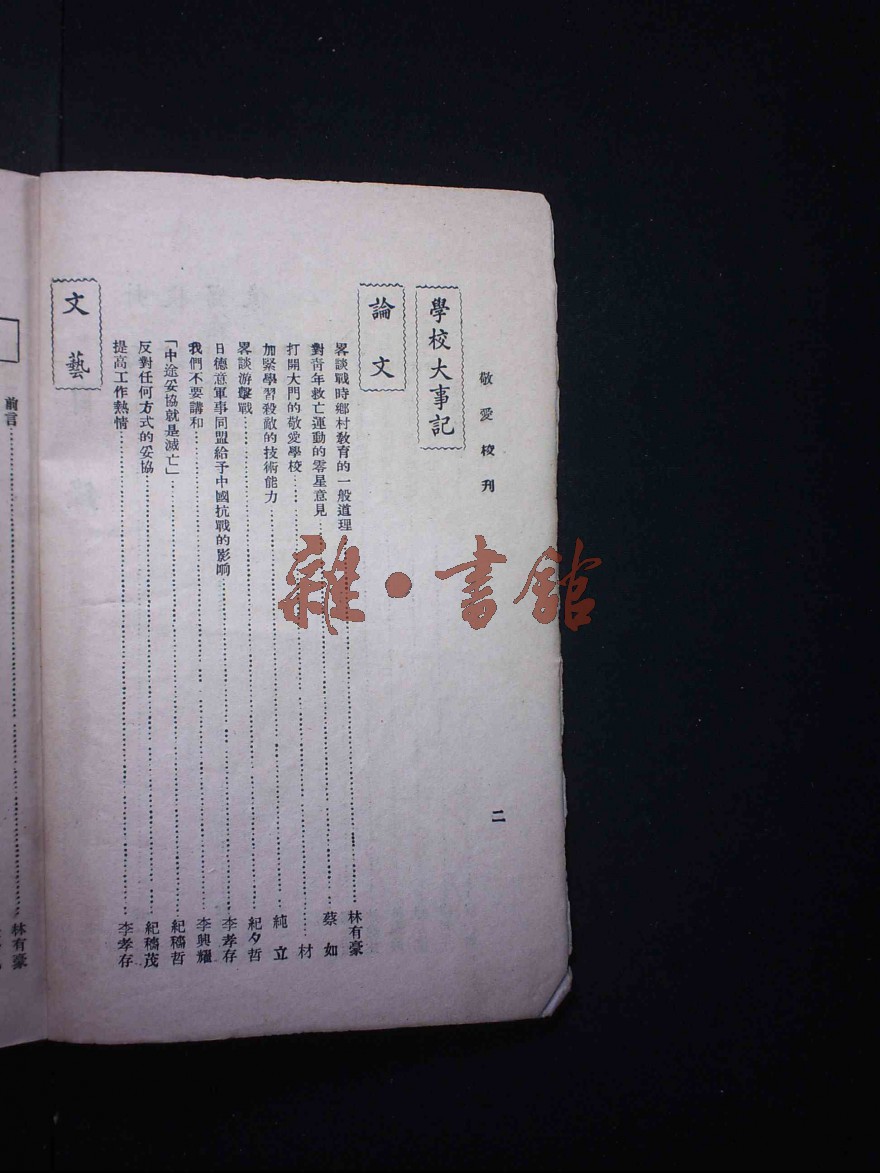 敬愛校刊
二
學校大事記
論文
畧談戰時鄉村教育的一般道理 林有豪
對靑年救亡運動的零星意見 蔡如
打開大門的敬愛學校 材
加緊學習殺敵的技術能力 純立
畧談游擊戰 紀夕哲
日德意軍事同盟給予中國抗戰的影响 李孝存
我們不要講和 李興耀
「中途妥協就是滅亡」 紀穡哲
反對任何方式的妥協 紀穡茂
提高工作熱情 李孝存
文藝
前言 林有豪
雜·書館